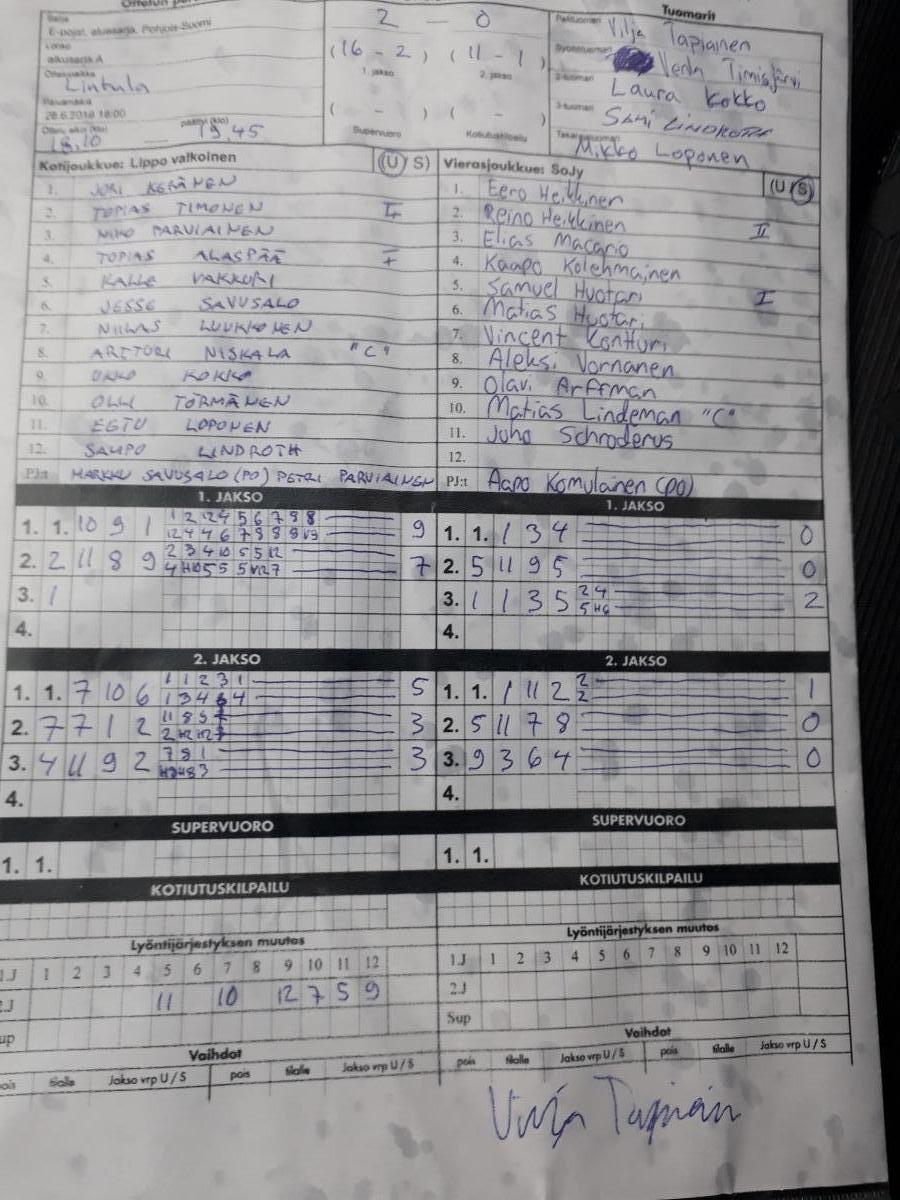 Ottelun
Sarja
E-pojat, aluesarja, Pohjois-Suomi
Lohko
alkusarja A
Ottelupaikka
Lintula
Päivämäärä
28.6.2018 18:00
Ottelu alkoi (klo) päättyi (klo)
18.10 — 19.45
2 — 0
(16 - 2) (11 - 1)
1. jakso 2. jakso
( - ) ( - )
Supervuoro Kotiutuskilpailu
Tuomarit
Pelituomari Vilja Tapiainen
Syöttötuomari Venla Timisjärvi
2-tuomari Laura Kokko
3-tuomari Sami Lindroth
Takarajatuomari Mikko Loponen
Kotijoukkue: Lippo valkoinen (U S)
1. JORI KERÄNEN
2. TOPIAS TIMONEN I
3. NIKO PARVIAINEN
4. TOPIAS ALASPÄÄ I
5. KALLE VAKKURI
6. JESSE SAVUSALO
7. NIILAS LUUKKONEN
8. ARTTURI NISKALA "C"
9. UKKO KOKKO
10. OLLI TÖRMÄNEN
11. EETU LOPONEN
12. SAMPO LINDROTH
PJ:t MARKKU SAVUSALO (PO) PETRI PARVIAINEN
Vierasjoukkue: SoJy (U S)
1. Eero Heikkinen
2. Reino Heikkinen II
3. Elias Macario
4. Kaapo Kolehmainen
5. Samuel Huotari I
6. Matias Huotari
7. Vincent Kontturi
8. Aleksi Vornanen
9. Olavi Arffman
10. Matias Lindeman "C"
11. Juho Schroderus
12.
PJ:t Aapo Komulainen (PO)
1. JAKSO
1. 1. 10 9 1 9
2. 2 11 8 9 7
3. 1
4.
1. JAKSO
1. 1. 1 3 4 0
2. 5 11 9 5 0
3. 1 1 3 5 2 4 2
5 H6
4.
2. JAKSO
1. 1. 7 10 6 1 1 2 3 1 5
1 3 4 6 4
2. 7 7 1 2 3
3. 4 11 9 2 7 8 1 3
4.
2. JAKSO
1. 1. 1 11 2 2 1
2
2. 5 11 7 8 0
3. 9 3 6 4 0
4.
SUPERVUORO
1. 1.
SUPERVUORO
1. 1.
KOTIUTUSKILPAILU
KOTIUTUSKILPAILU
Lyöntijärjestyksen muutos
1.J 1 2 3 4 5 6 7 8 9 10 11 12
2.J 11 10 12 7 5 9
Sup
Lyöntijärjestyksen muutos
1.J 1 2 3 4 5 6 7 8 9 10 11 12
2.J
Sup
Vaihdot
pois tilalle Jakso vrp U / S pois tilalle Jakso vrp U / S
Vaihdot
pois tilalle Jakso vrp U / S pois tilalle Jakso vrp U / S